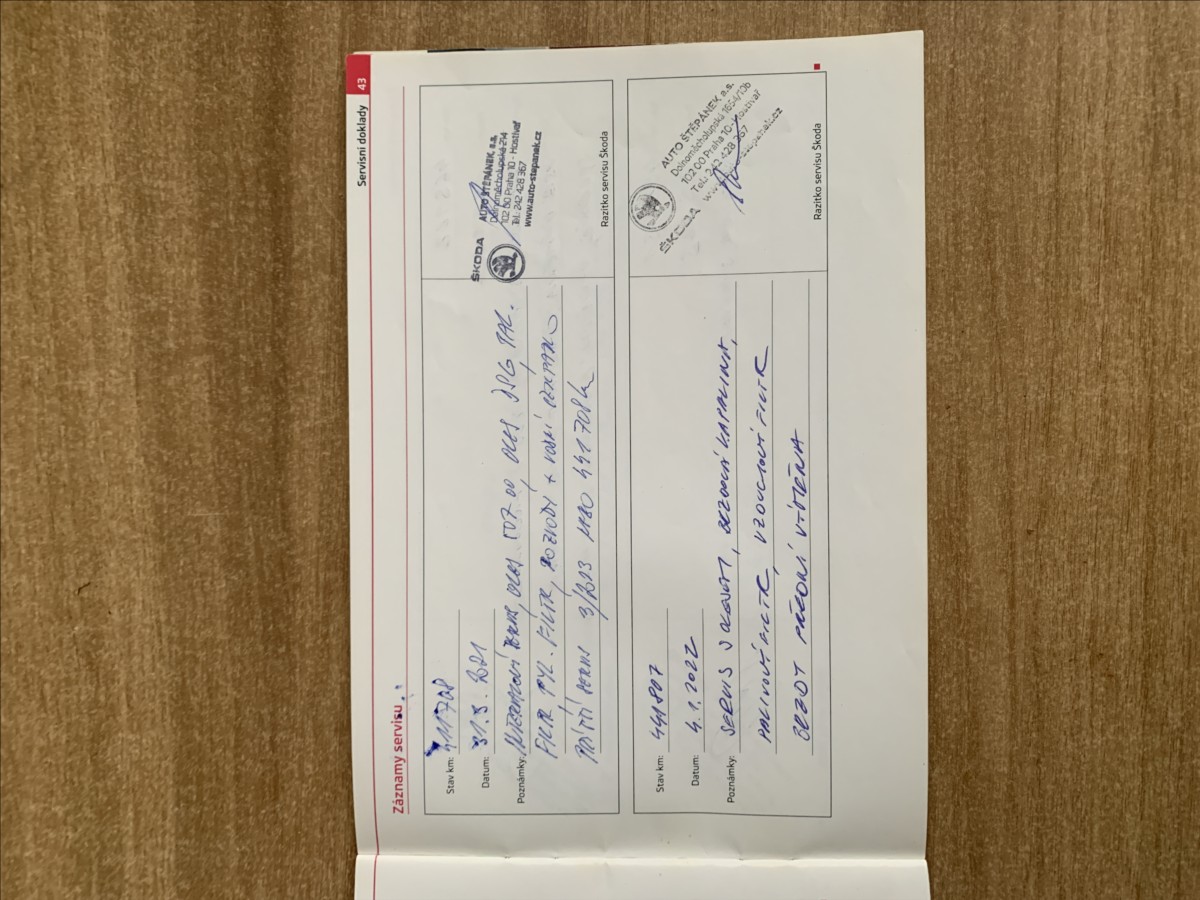 Servisní doklady 43
Záznamy servisu
Stav km: 411708
Datum: 31.3.2021
Poznámky: SERVIS, OLEJ 507 00 OLEJ DSG, PAL.
FILTR, PYL. FILTR, ROZVODY + VODNÍ
PŘÍŠTÍ SERVIS 3/2023 NEBO 441708 km
ŠKODA
AUTO ŠTĚPÁNEK, a.s.
Dolnoměcholupská 214
102 00 Praha 10 - Hostivař
Tel.: 242 428 367
www.auto-stepanek.cz
Razítko servisu Škoda
Stav km: 441807
Datum: 4.1.2022
Poznámky: SERVIS S OLEJEM, BRZDOVÁ KAPALINA,
PALIVOVÝ FILTR, VZDUCHOVÝ FILTR
BRZDY PŘEDNÍ VÝMĚNA
ŠKODA
AUTO ŠTĚPÁNEK, a.s.
Dolnoměcholupská 1654/13b
102 00 Praha 10 - Hostivař
Tel.: 242 428 367
Razítko servisu Škoda